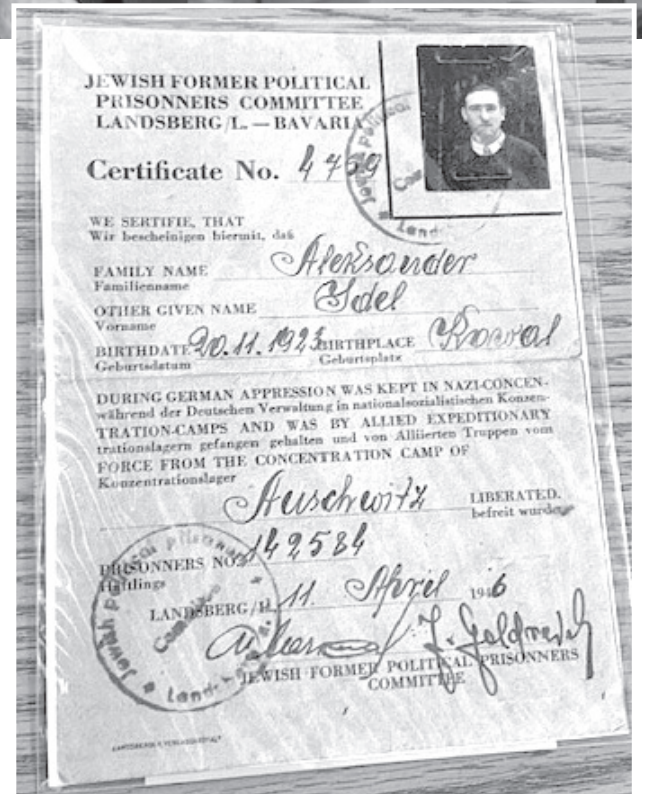 JEWISH FORMER POLITICAL
PRISONNERS COMMITTEE
LANDSBERG/L. — BAVARIA
Certificate No. 4759
WE SERTIFIE, THAT
Wir bescheinigen hiermit, daß
FAMILY NAME Aleksander
Familienname
OTHER GIVEN NAME Idel
Vorname
BIRTHDATE 20.11.1923 BIRTHPLACE
Geburtsdatum Geburtsplatz
DURING GERMAN APPRESSION WAS KEPT IN NAZI-CONCEN-
während der Deutschen Verwaltung in nationalsozialistischen Konzen-
TRATION-CAMPS AND WAS BY ALLIED EXPEDITIONARY
trationslagern gefangen gehalten und von Alliierten Truppen vom
FORCE FROM THE CONCENTRATION CAMP OF
Konzentrationslager
Auschwitz LIBERATED.
befreit wurde
PRISONNERS NO. 142584
Häftlings
LANDSBERG/L. 11. April 1946
JEWISH FORMER POLITICAL PRISONNERS
COMMITTEE